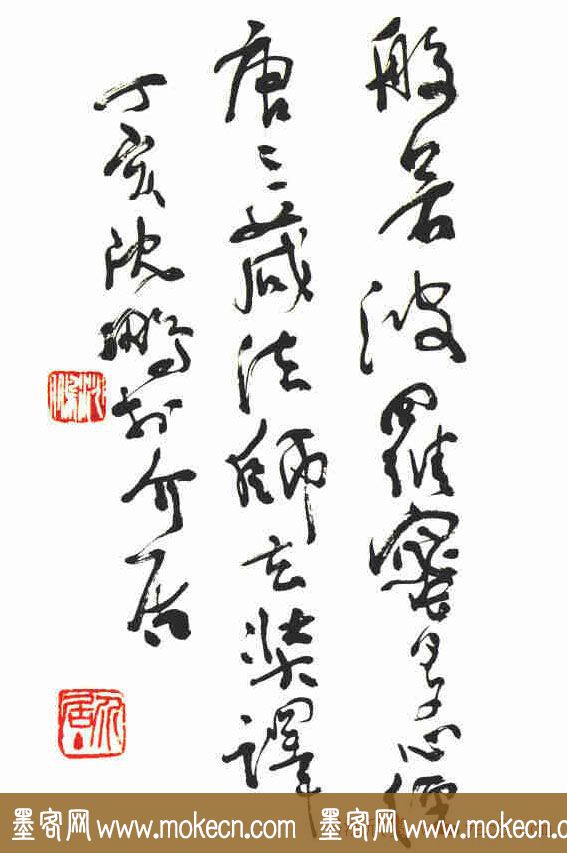 般若波羅蜜多心經
唐三藏法師玄奘譯
丁亥沈鹏於介居
沈鹏
介居
墨客网 www.mokecn.com 墨客网 www.mokecn.com